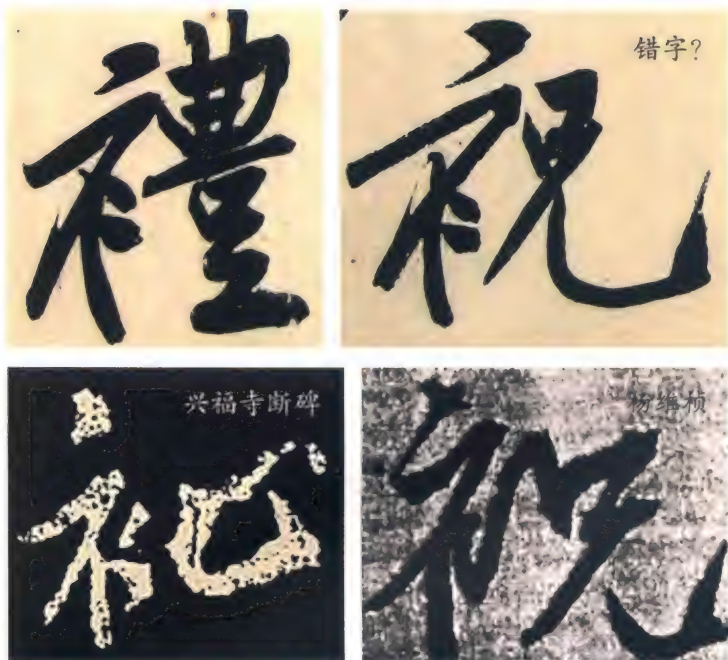 禮
祝 错字?
兴福寺断碑
祝 杨维桢